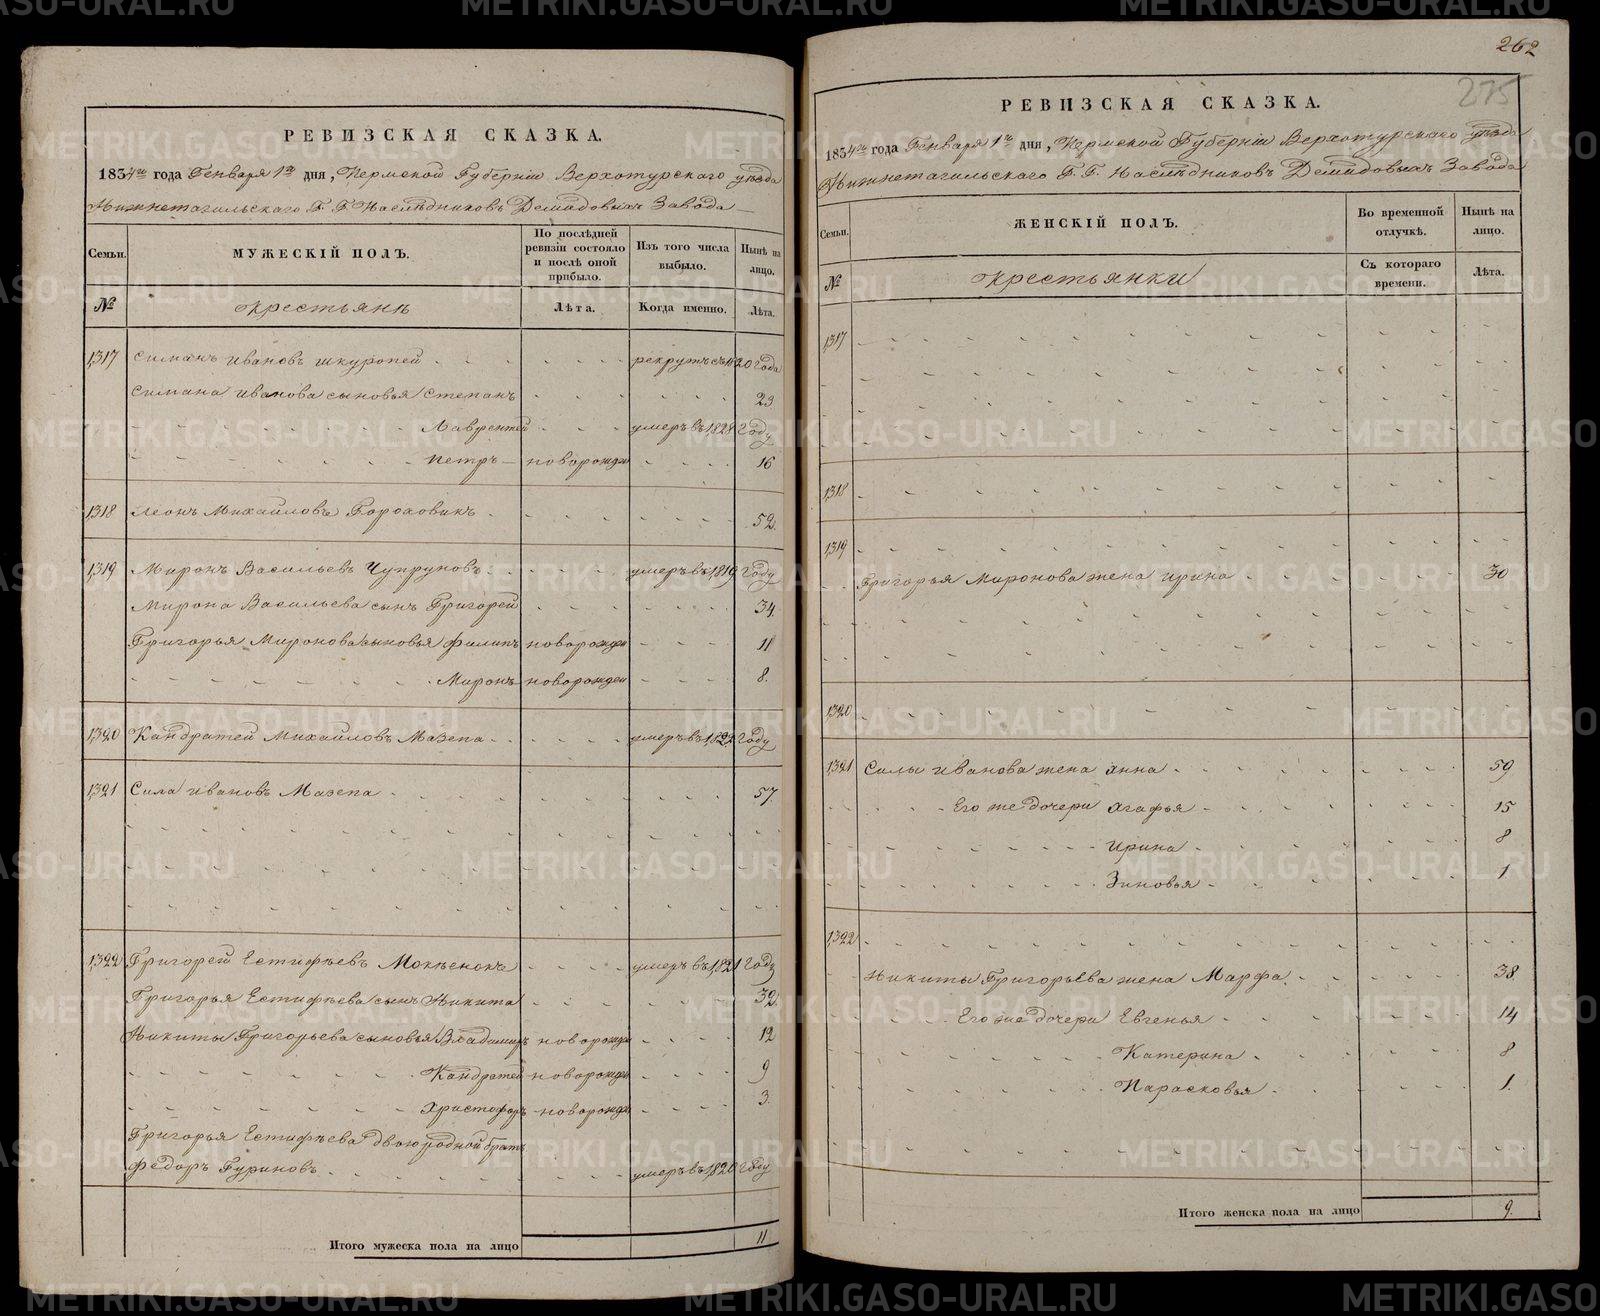 РЕВИЗСКАЯ СКАЗКА.
1834го года Генваря 1го дня, Пермской Губерніи Верхотурскаго уѣзда
Нижнетагильскаго Г. Г. Наслѣдниковъ Демидовыхъ Завода
Семьи. МУЖЕСКІЙ ПОЛЪ. По послѣдней ревизіи состояло и послѣ оной прибыло. Изъ того числа выбыло. Нынѣ на лицо.
№ Крестьянѣ Лѣта. Когда именно. Лѣта.
1317 Симанъ Ивановъ Шкуропей рекрутъ съ 1820 Года
Симана Иванова сыновья Степанъ 23
Лаврентей умеръ въ 1828 Году
Петръ новорожден 16
1318 Леонъ Михайловъ Гороховикъ 52.
1319 Миронъ Васильевъ Чупруновъ умеръ въ 1819 Году
Мирона Васильева сынъ Григорей 34.
Григорья Миронова сыновья Филипъ новорожден 11
Миронъ новорожден 8.
1320 Кандратей Михайловъ Мазепа умеръ въ 1822 Году
1321 Сила Ивановъ Мазепа 57.
1322 Григорей Естифѣевъ Мокѣенокъ умеръ въ 1821 Году
Григорья Естифѣева сынъ Никита 32.
Никиты Григорьева сыновья Владимиръ новорожден 12
Кандратей новорожден 9
Христофоръ новорожден 3.
Григорья Естифѣева двоюродной братъ
Федоръ Гуриновъ умеръ въ 1820 Году
Итого мужеска пола на лицо 11
262
275
РЕВИЗСКАЯ СКАЗКА.
1834го года Генваря 1го дня, Пермской Губерніи Верхотурскаго уѣзда
Нижнетагильскаго Г. Г. Наслѣдниковъ Демидовыхъ Завода
Семьи. ЖЕНСКІЙ ПОЛЪ. Во временной отлучкѣ. Нынѣ на лицо.
№ Крестьянки Съ котораго времени. Лѣта.
1317
1318
1319
Григорья Миронова жена Ирина 30
1320
1321 Силы Иванова жена Анна 59
Его же дочери Агафья 15
Ирина 8
Зиновья 1
1322
Никиты Григорьева жена Марфа 38
Его же дочери Евгенья 14
Катерина 8
Парасковья 1.
Итого женска пола на лицо 9.
METRIKI.GASO-URAL.RU